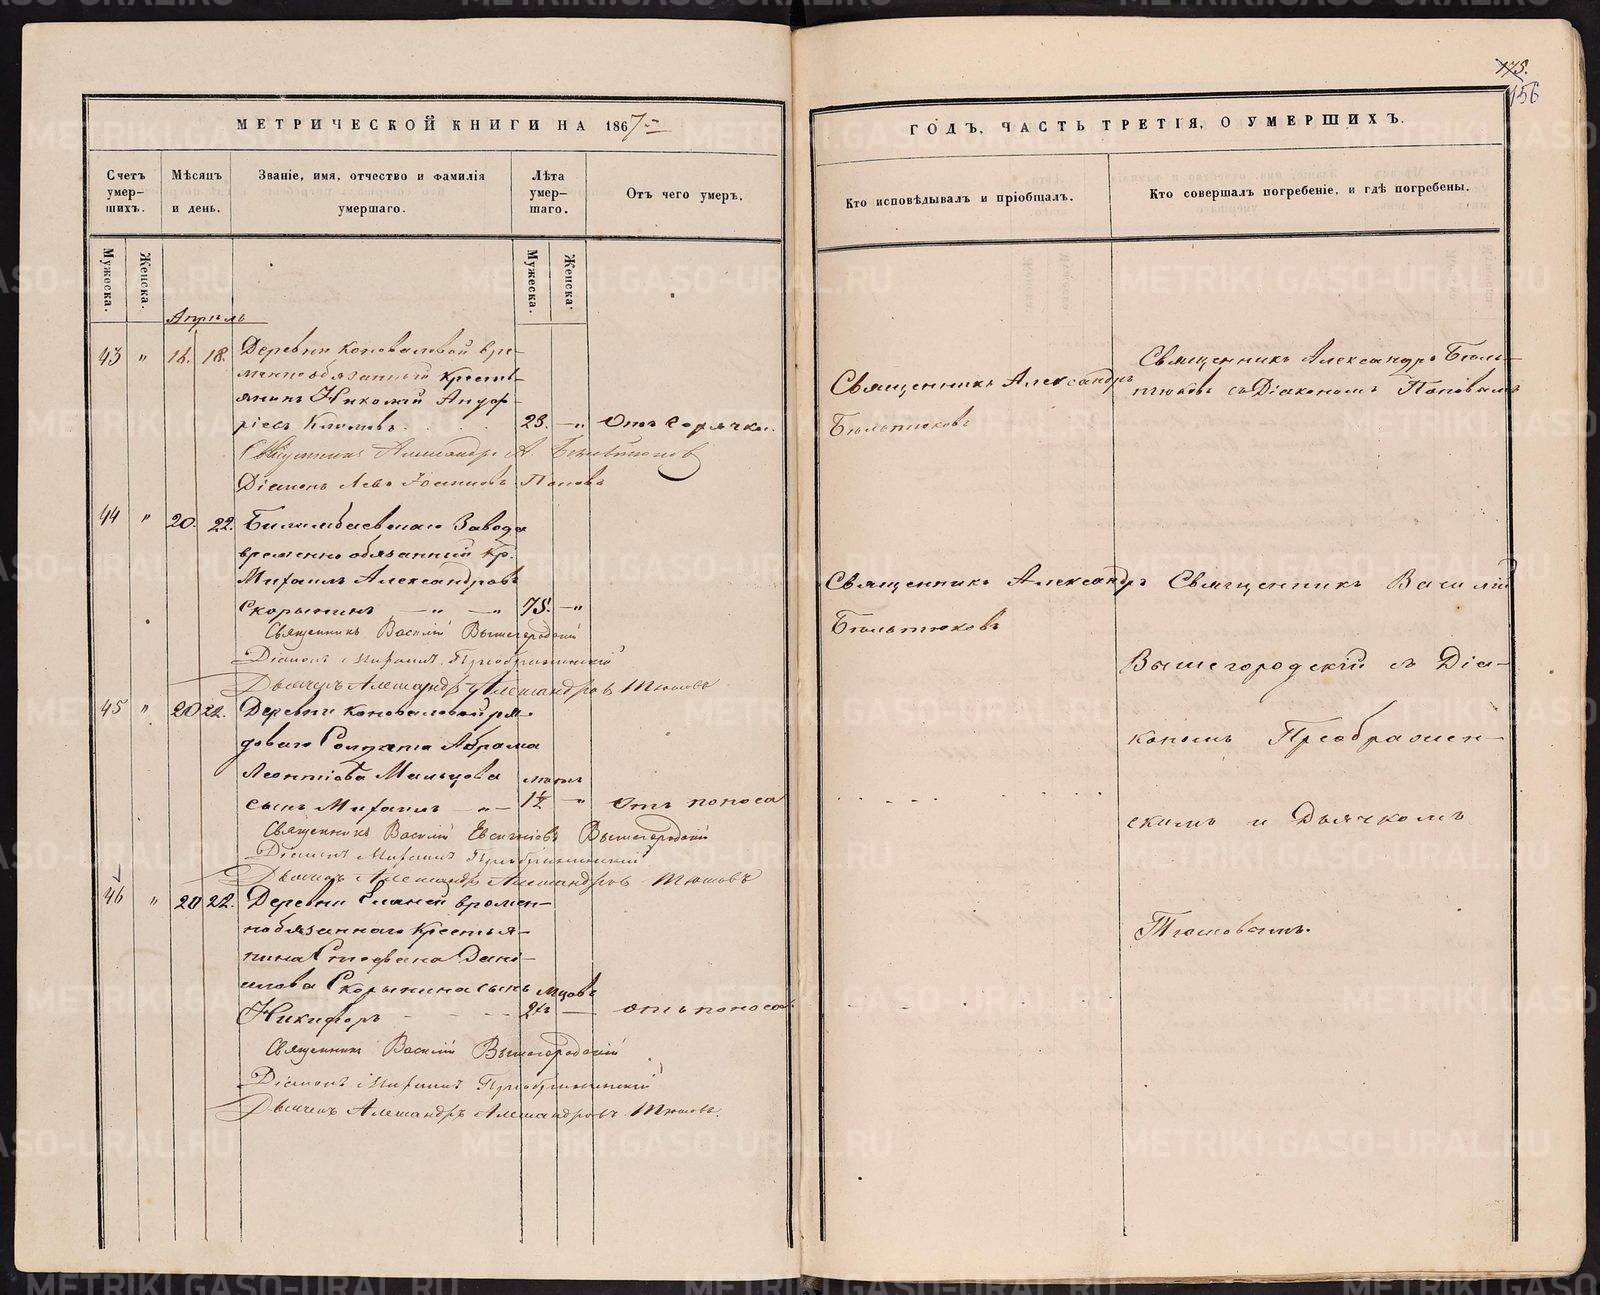 175.
156
МЕТРИЧЕСКОЙ КНИГИ НА 1867
ГОДЪ, ЧАСТЬ ТРЕТІЯ, О УМЕРШИХЪ.
Счетъ умер-шихъ.
Мѣсяцъ и день.
Званіе, имя, отчество и фамилія умершаго.
Лѣта умер-шаго.
Отъ чего умеръ.
Кто исповѣдывалъ и пріобщалъ.
Кто совершалъ погребеніе, и гдѣ погребены.
Мужеска.
Женска.
Мужеска.
Женска.
Апрѣль
43 " 16. 18. Деревни Коноваловой вре-
меннообязанный кресть-
янинъ Николай
Климовъ 23. —" Отъ горячки.
Священникъ Александръ
Діаконъ Левъ Іоанновъ Поповъ
Священникъ Александръ
Священникъ Александръ
съ Діакономъ Поповымъ
44 " 20. 22. Билимбаевскаго Завода
временнообязанный кр.
Михаилъ Александровъ
Скорынинъ —"— 75. —"
Священникъ Василій Вышегородскій
Діаконъ Михаилъ Преображенскій
Дьячекъ Александръ Александровъ Тюшовъ
Священникъ Александръ
Священникъ Василій
Вышегородскій съ Діа-
кономъ Преображен-
скимъ и Дьячкомъ
Тюшовымъ.
45 " 20 22. Деревни Коноваловой ря-
доваго Солдата Абрама
Леонтіева Мальцова
сынъ Михаилъ —"— 1½ —" Отъ поноса
Священникъ Василій Евсигніевъ Вышегородскій
Діаконъ Михаилъ Преображенскій
Дьячекъ Александръ Александровъ Тюшовъ
46 " 20 22. Деревни Еланей времен-
нобязаннаго крестья-
нина Стефана Дани-
илова Скорынина сынъ
Никифоръ — отъ поноса.
Священникъ Василій Вышегородскій
Діаконъ Михаилъ Преображенскій
Дьячекъ Александръ Александровъ Тюшовъ.
METRIKI.GASO-URAL.RU